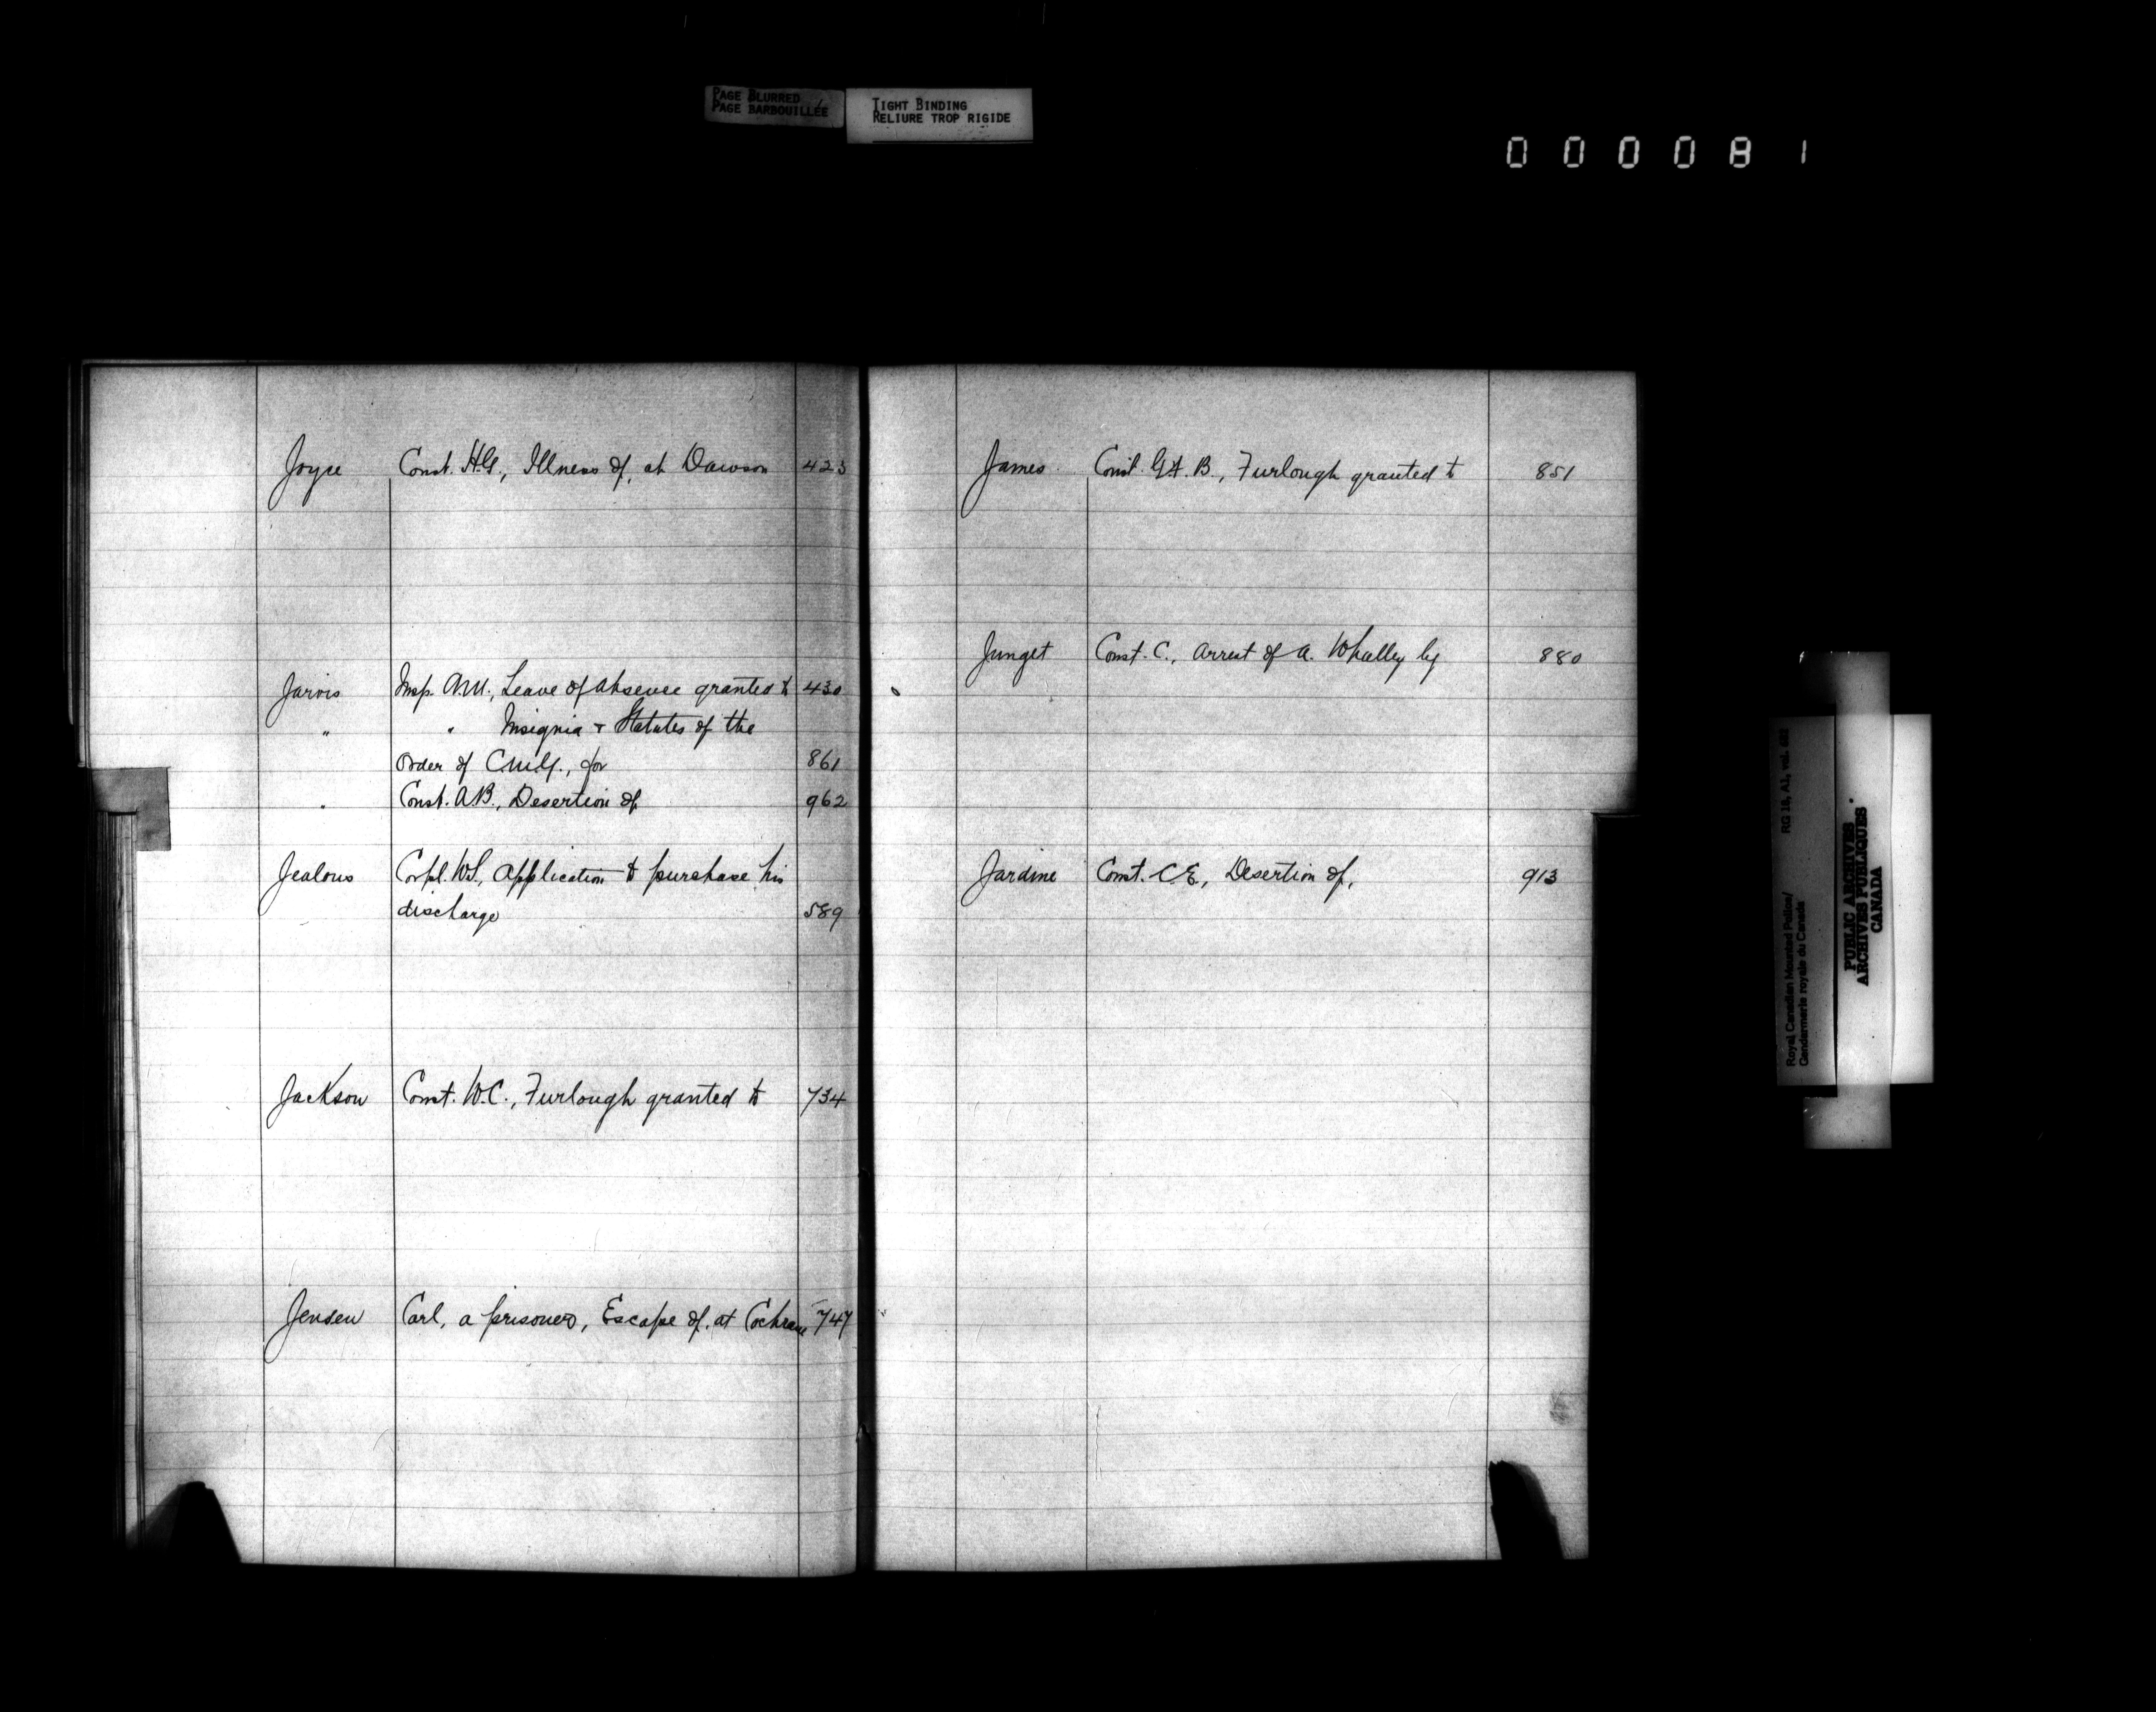 PAGE BLURRED
PAGE BARBOUILLÉE
TIGHT BINDING
RELIURE TROP RIGIDE
000081
Joyce Const. H.G., Illness of, at Dawson 423
Jarvis Insp. A.M., Leave of Absence granted to 430
" " Insignia & Statutes of the
Order of C.M.G., for 861
" Const. A.B., Desertion of 962
Jealous Corpl. W.S., Application to purchase his
discharge 589
Jackson Const. W.C., Furlough granted to 734
Jensen Carl, a prisoner, Escape of, at Cochrane 747
James Const. B., Furlough granted to 851
Junget Const. C., Arrest of A. Whalley by 880
Jardine Const. C.E., Desertion of, 913
Royal Canadian Mounted Police/ RG 18, A1, vol.
Gendarmerie royale du Canada
PUBLIC ARCHIVES
ARCHIVES PUBLIQUES
CANADA